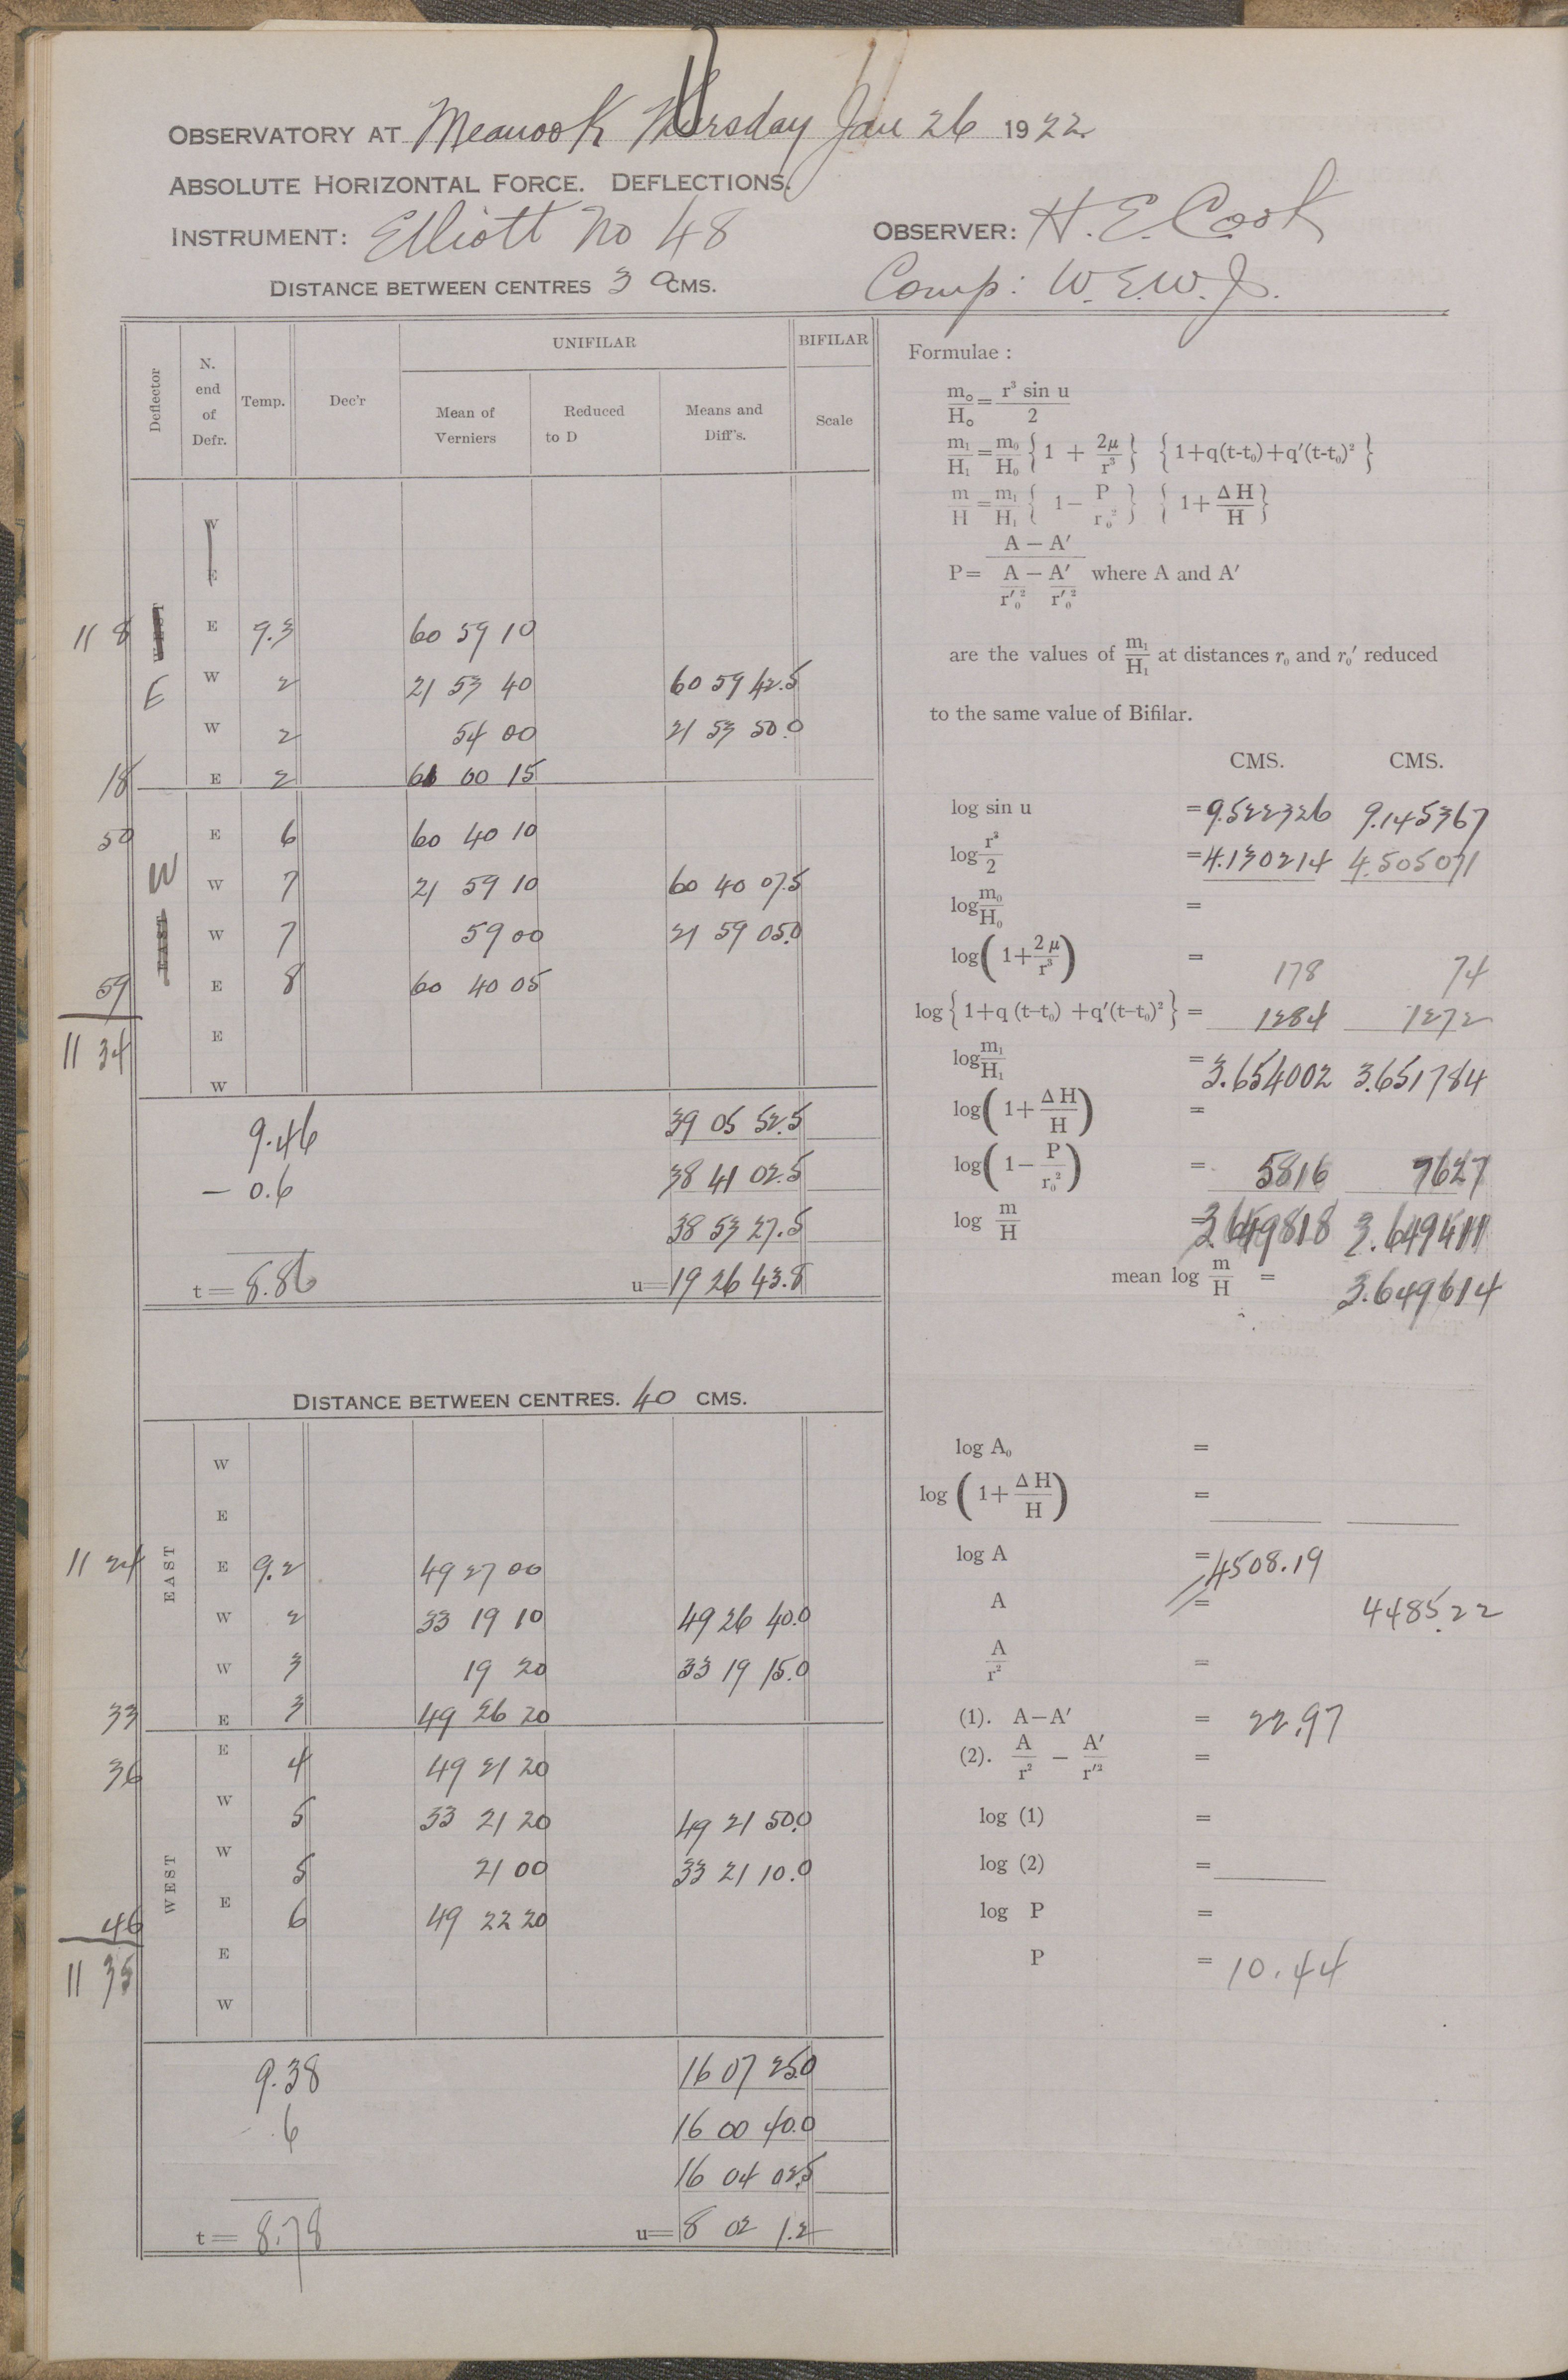 OBSERVATORY AT Meanook Thursday Jan 26 1922
ABSOLUTE HORIZONTAL FORCE. DEFLECTIONS.
INSTRUMENT: Elliott No 48 OBSERVER: H. E. Cook
DISTANCE BETWEEN CENTRES 30 CMS. Comp: W. E. W. J.
Deflector N. end of Defr. Temp. Dec'r UNIFILAR BIFILAR
Mean of Verniers Reduced to D Means and Diff's. Scale
W
E
11 8 E 9.3 60 59 10
E W 2 21 53 40 60 59 42.5
W 2 54 00 21 53 50.0
18 E 2 61 00 15
50 E 6 60 40 10
W W 7 21 59 10 60 40 07.5
EAST W 7 59 00 21 59 05.0
59 E 8 60 40 05
11 34 E
W
9.46 39 05 52.5
- 0.6 38 41 02.5
38 53 27.5
t= 8.86 u= 19 26 43.8
DISTANCE BETWEEN CENTRES. 40 CMS.
EAST
W
E
11 24 E 9.2 49 27 00
W 2 33 19 10 49 26 40.0
W 3 19 20 33 19 15.0
33 E 3 49 26 20
WEST
36 E 4 49 21 20
W 5 33 21 20 49 21 50.0
W 5 21 00 33 21 10.0
46 E 6 49 22 20
11 35 E
W
9.38 16 07 25.0
.6 16 00 40.0
16 04 02.5
t= 8.78 u= 8 02 1.2
Formulae :
m₀/H₀ = r³ sin u/2
m₁/H₁ = m₀/H₀ {1 + 2μ/r³} {1+q(t-t₀)+q′(t-t₀)²}
m/H = m₁/H₁ {1 − P/r₀²} {1+ ΔH/H}
P= A − A′ / A/r′₀² − A′/r′₀² where A and A′
are the values of m₁/H₁ at distances r₀ and r₀′ reduced
to the same value of Bifilar.
CMS. CMS.
log sin u = 9.522326 9.145367
log r³/2 = 4.130214 4.505071
log m₀/H₀ =
log(1+ 2μ/r³) = 178 74
log{1+q (t-t₀) +q′(t-t₀)²} = 1284 1272
log m₁/H₁ = 3.654002 3.651784
log(1+ ΔH/H) =
log(1− P/r₀²) = 5816 7627
log m/H = 3.649818 3.649411
mean log m/H = 3.649614
log A₀ =
log (1+ ΔH/H) =
log A = 4508.19
A = 4485.22
A/r² =
(1). A−A′ = 22.97
(2). A/r² − A′/r′² =
log (1) =
log (2) =
log P =
P = 10.44